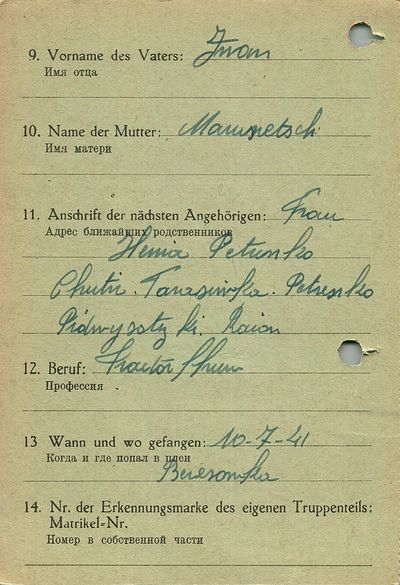 9. Vorname des Vaters: Iwan
Имя отца
10. Name der Mutter:
Имя матери
11. Anschrift der nächsten Angehörigen: Frau
Адрес ближайших родственников
Petrenko
Chutir. Tarasiwka. Petresko
Pidwysotzki. Raion
12. Beruf: Tractor
Профессия .
13 Wann und wo gefangen: 10-7-41
Когда и где попал в плен
Beresowka
14. Nr. der Erkennungsmarke des eigenen Truppenteils:
Matrikel-Nr.
Номер в собственной части